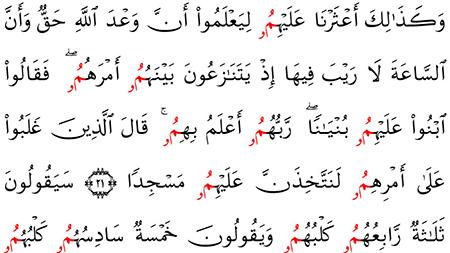 وَكَذَٰلِكَ أَعْثَرْنَا عَلَيْهِمُۥ لِيَعْلَمُوا۟ أَنَّ وَعْدَ ٱللَّهِ حَقٌّ وَأَنَّ
ٱلسَّاعَةَ لَا رَيْبَ فِيهَا إِذْ يَتَنَٰزَعُونَ بَيْنَهُمُۥ أَمْرَهُمُۥ ۖ فَقَالُوا۟
ٱبْنُوا۟ عَلَيْهِمُۥ بُنْيَٰنًا ۖ رَّبُّهُمُۥ أَعْلَمُ بِهِمُۥ ۚ قَالَ ٱلَّذِينَ غَلَبُوا۟
عَلَىٰ أَمْرِهِمُۥ لَنَتَّخِذَنَّ عَلَيْهِمُۥ مَسْجِدًا ٢١ سَيَقُولُونَ
ثَلَٰثَةٌ رَّابِعُهُمُۥ كَلْبُهُمُۥ وَيَقُولُونَ خَمْسَةٌ سَادِسُهُمُۥ كَلْبُهُمُۥ